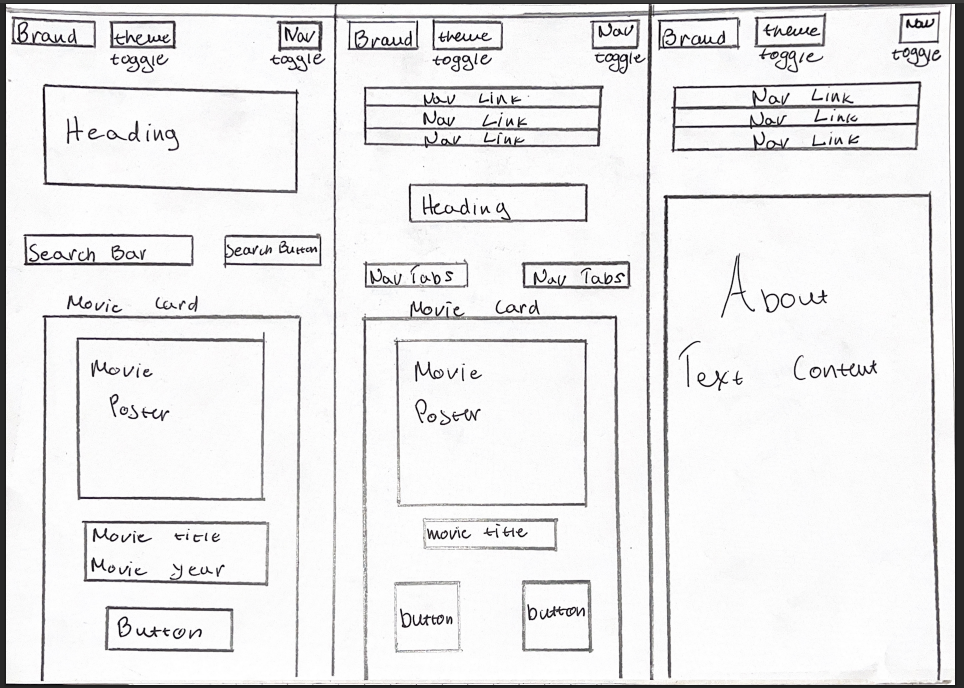 Brand
theme
toggle
Nav
toggle
Heading
Search Bar
Search Button
Movie Card
Movie
Poster
Movie title
Movie year
Button
Brand
theme
toggle
Nav
toggle
Nav Link
Nav Link
Nav Link
Heading
Nav Tabs
Nav Tabs
Movie Card
Movie
Poster
movie title
button
button
Brand
theme
toggle
Nav
toggle
Nav Link
Nav Link
Nav Link
About
Text Content